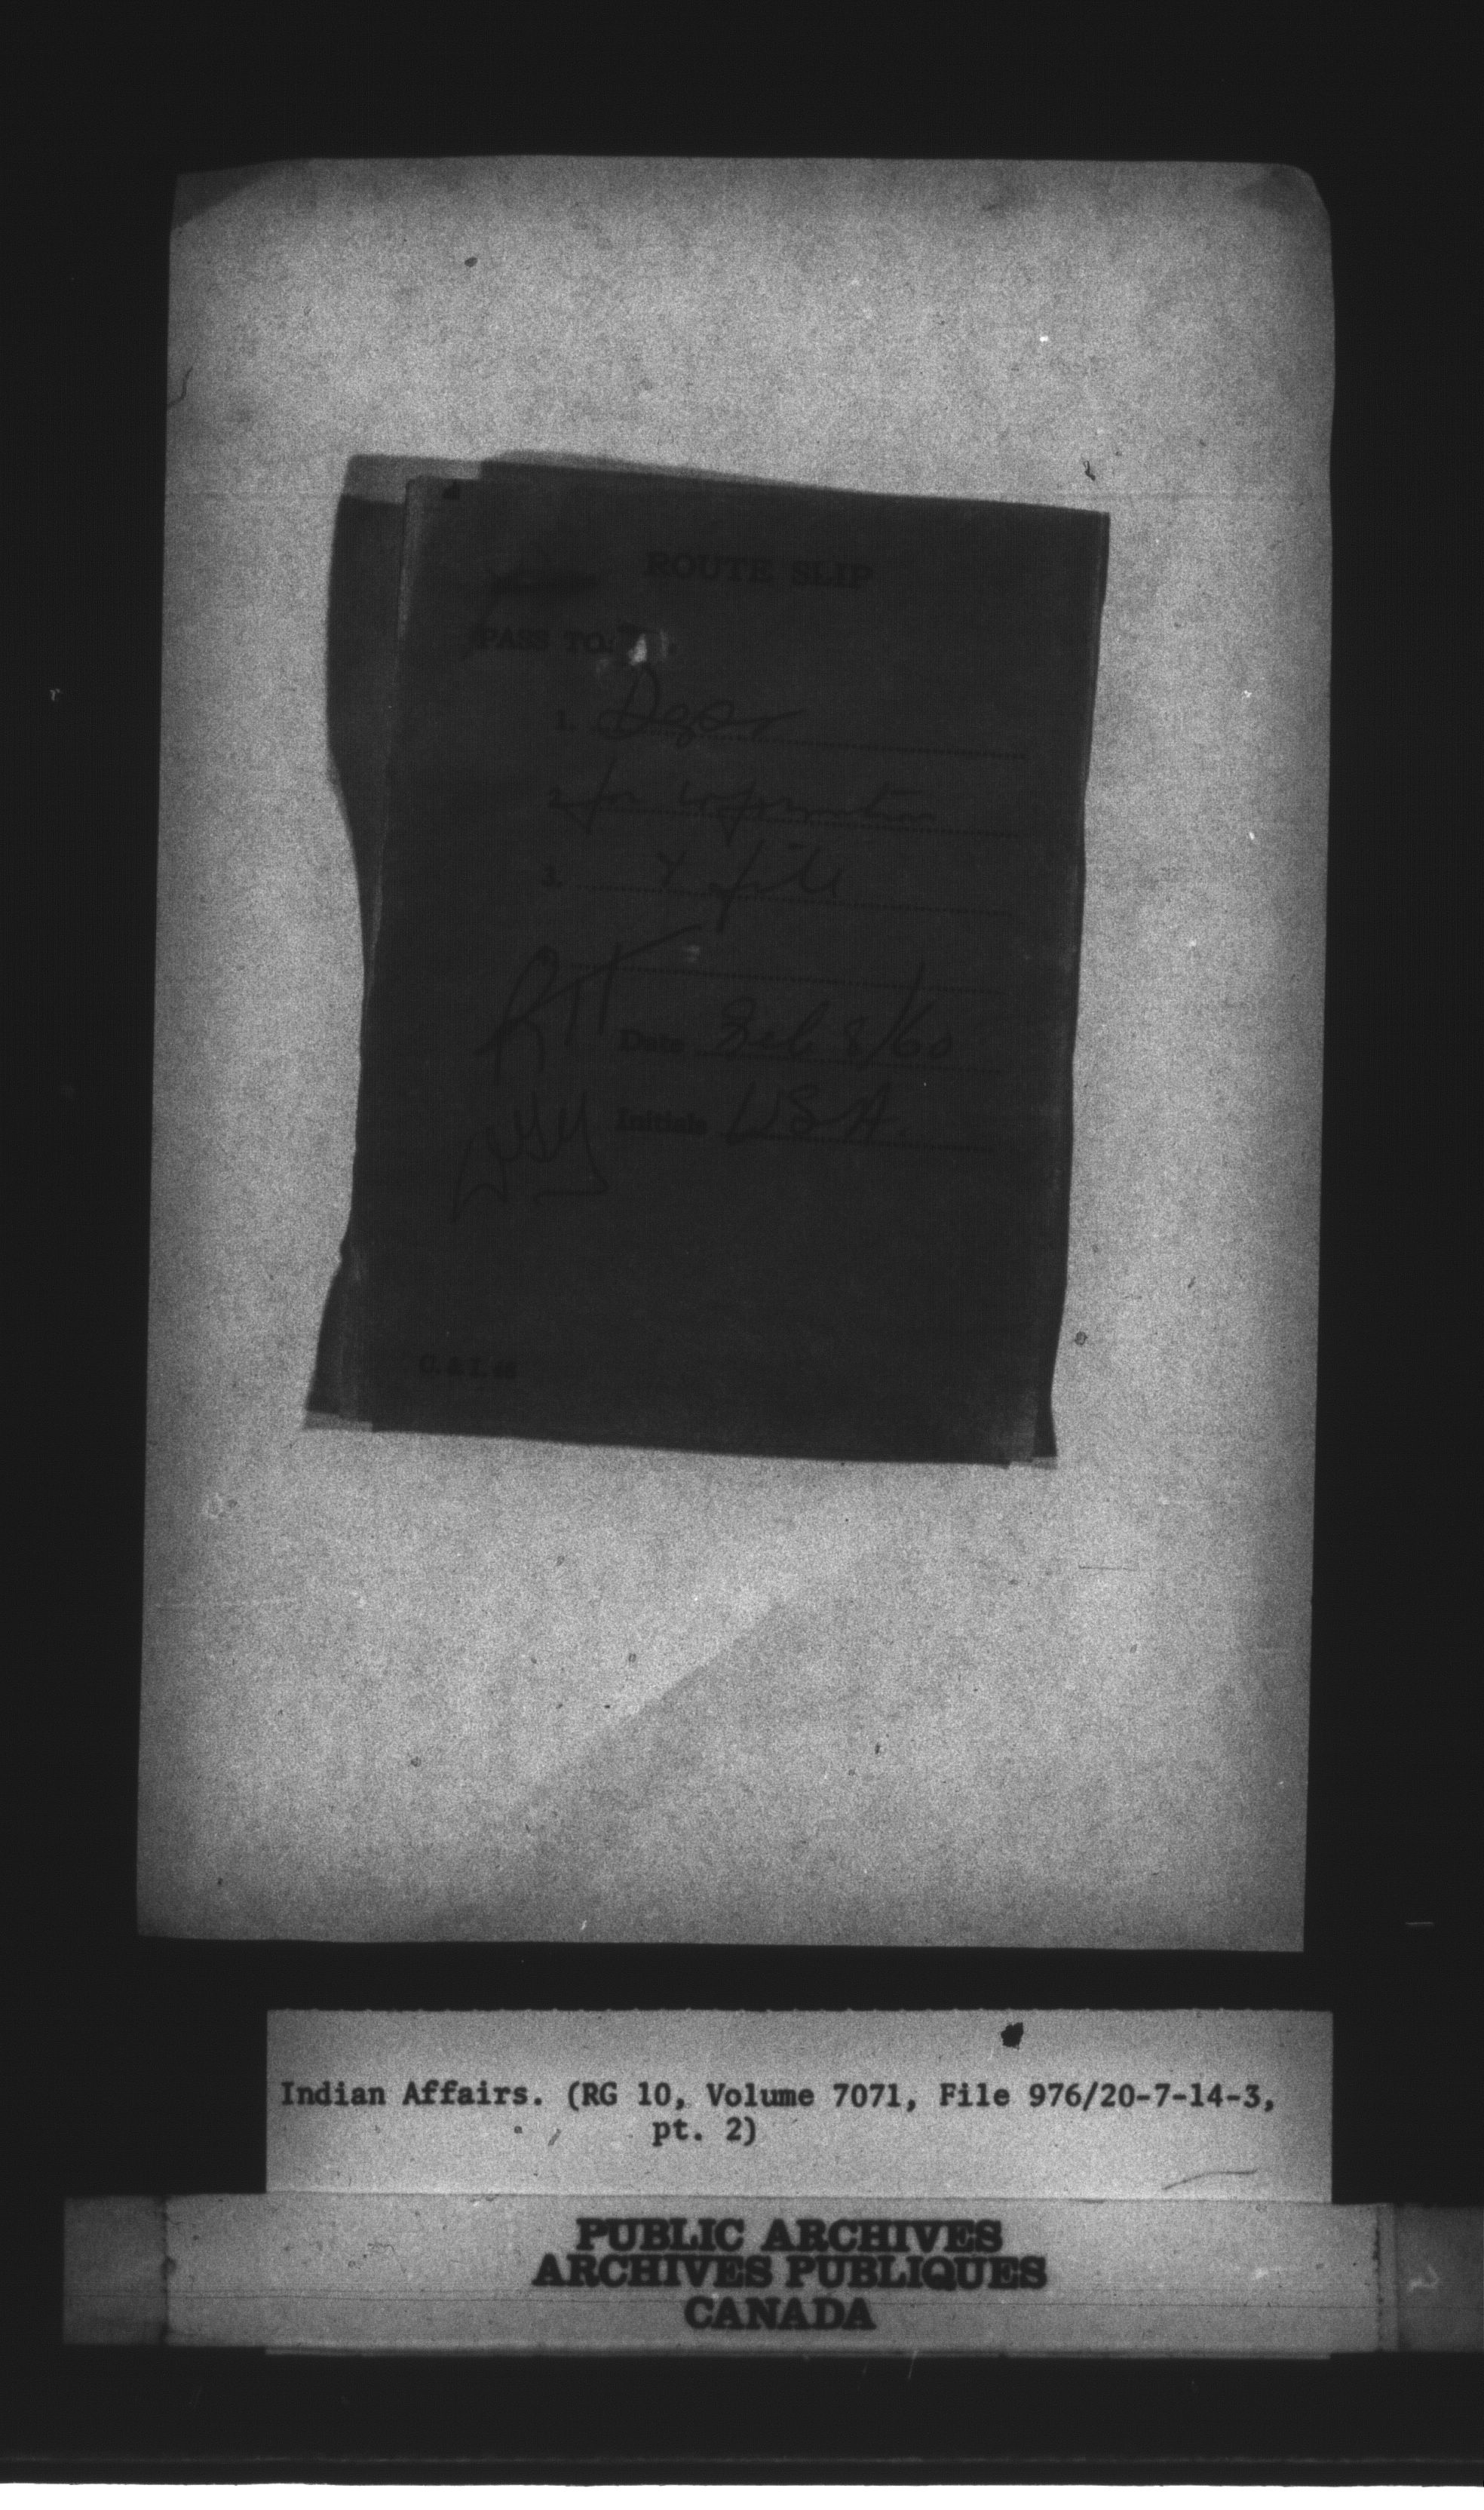 ROUTE SLIP
PASS TO:
1.
2. for information
3. & file
Date Feb 8/60
Initials WSA.
C. & I. 46
Indian Affairs. (RG 10, Volume 7071, File 976/20-7-14-3,
pt. 2)
PUBLIC ARCHIVES
ARCHIVES PUBLIQUES
CANADA